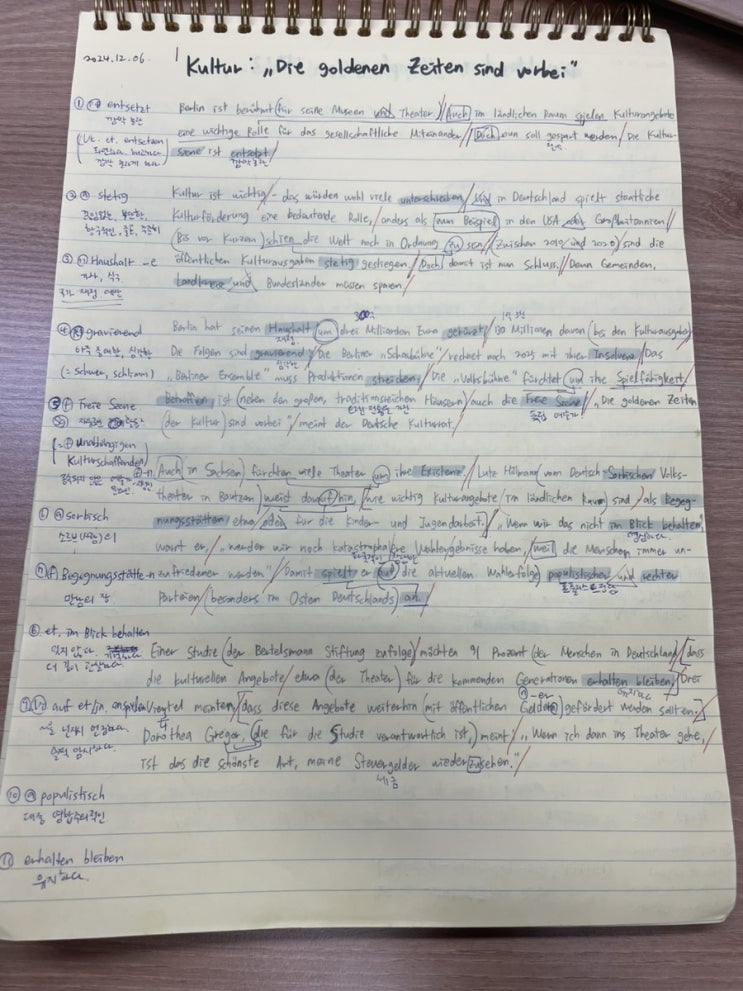 2024.12.06.
Kultur: „Die goldenen Zeiten sind vorbei"
① entsetzt
깜짝 놀란
(Vt. et. entsetzen
Berlin ist berühmt (für seine Museen und Theater.) / Auch im ländlichen Raum spielen Kulturangebote
eine wichtige Rolle für das gesellschaftliche Miteinander / Doch nun soll gespart werden / Die Kultur-
szene ist entsetzt /
② ⓐ stetig
Kultur ist wichtig / – das würden wohl viele unterschreiben / in Deutschland spielt staatliche
Kulturförderung eine bedeutende Rolle, / anders als zum Beispiel in den USA oder Großbritannien //
(Bis vor Kurzem) schien die Welt noch in Ordnung zu sein / (Zwischen 2010 und 2020) sind die
③ Haushalt -e
가사, 식구
öffentlichen Kulturausgaben stetig gestiegen. / Doch damit ist nun Schluss. / Denn Gemeinden,
Landkreise und Bundesländer müssen sparen /
④ ⓐ gravierend
(= schwer, schlimm)
Berlin hat seinen Haushalt um drei Milliarden Euro gekürzt / 130 Millionen davon (bei den Kulturausgaben)
Die Folgen sind gravierend: / Die Berliner „Schaubühne" rechnet noch 2025 mit ihrer Insolvenz / Das
„Berliner Ensemble" muss Produktionen streichen / Die „Volksbühne" fürchtet um ihre Spielfähigkeit
⑤ Freie Szene
(= unabhängigen
Kulturschaffenden)
Betroffen ist (neben den großen, traditionsreichen Häusern) auch die Freie Szene / „Die goldenen Zeiten
(der Kultur) sind vorbei" / meint der Deutsche Kulturrat.
Auch in Sachsen) fürchten viele Theater um ihre Existenz / Lutz Hillmann (vom Deutsch-Sorbischen Volks-
theater in Bautzen) weist darauf hin, / wie wichtig Kulturangebote (im ländlichen Raum) sind / als Begeg-
ⓐ sorbisch
nungsstätten etwa oder für die Kinder- und Jugendarbeit. / „Wenn wir das nicht im Blick behalten",
warnt er, / „werden wir noch katastrophalere Wahlergebnisse haben, / weil die Menschen immer un-
Begegnungsstätte -n
만남의 장
zufriedener werden" / Damit spielt er auf die aktuellen Wahlerfolge) populistischer und rechter
Parteien / (besonders im Osten Deutschlands) an.
et. im Blick behalten
잊지 않다
Einer Studie (der Bertelsmann Stiftung zufolge) / möchten 91 Prozent (der Menschen in Deutschland) / dass
die kulturellen Angebote / etwa (der Theater) für die kommenden Generationen erhalten bleiben / Drei
auf et/jn. anspielen
Viertel meinten, / dass diese Angebote weiterhin (mit öffentlichen Geldern) gefördert werden sollten.
Dorothea Gregor, (die für die Studie verantwortlich ist,) meint / „Wenn ich dann ins Theater gehe,
ist das die schönste Art, meine Steuergelder wiederzusehen." /
세금
⑩ ⓐ populistisch
⑪ erhalten bleiben
유지하다.